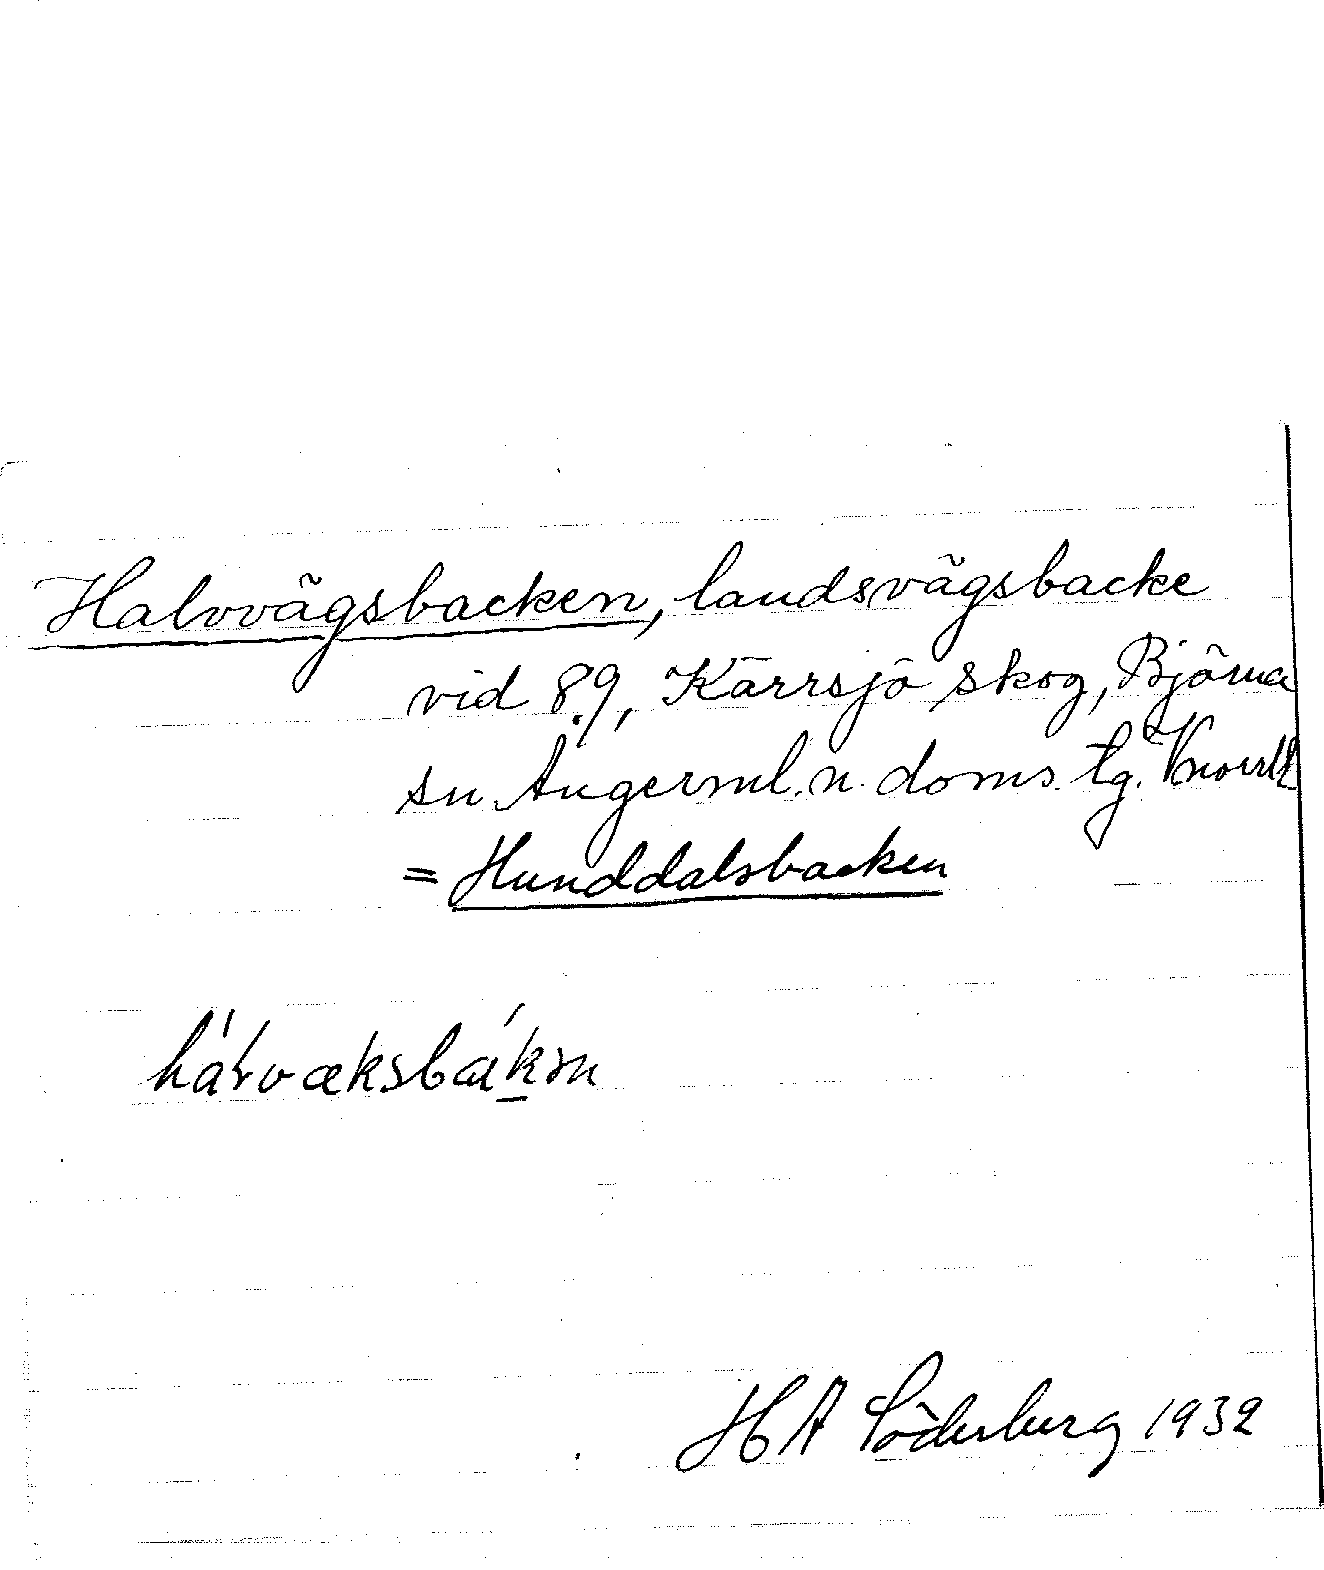 Halvvägsbacken, landsvägsbacke
vid 89, Kärrsjö skog, Björna
sn Ångerml. n. doms. tg. Vnorrl
= Hunddalsbacken
HA Söderberg 1932